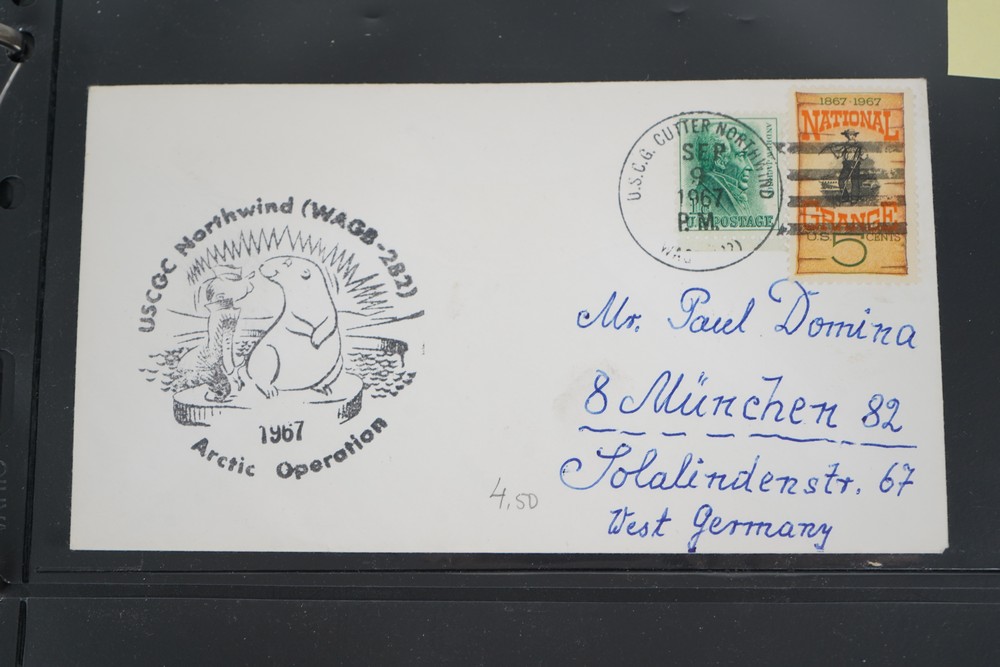 USCGC Northwind (WAGB-282)
1967
Arctic Operation
U.S.C.G. CUTTER NORTHWIND
SEP
9
1967
P.M.
U.S. POSTAGE
1867·1967
NATIONAL
GRANGE
U.S. 5 CENTS
Mr. Paul Domina
8 München 82
Solalindenstr. 67
West Germany
4,50